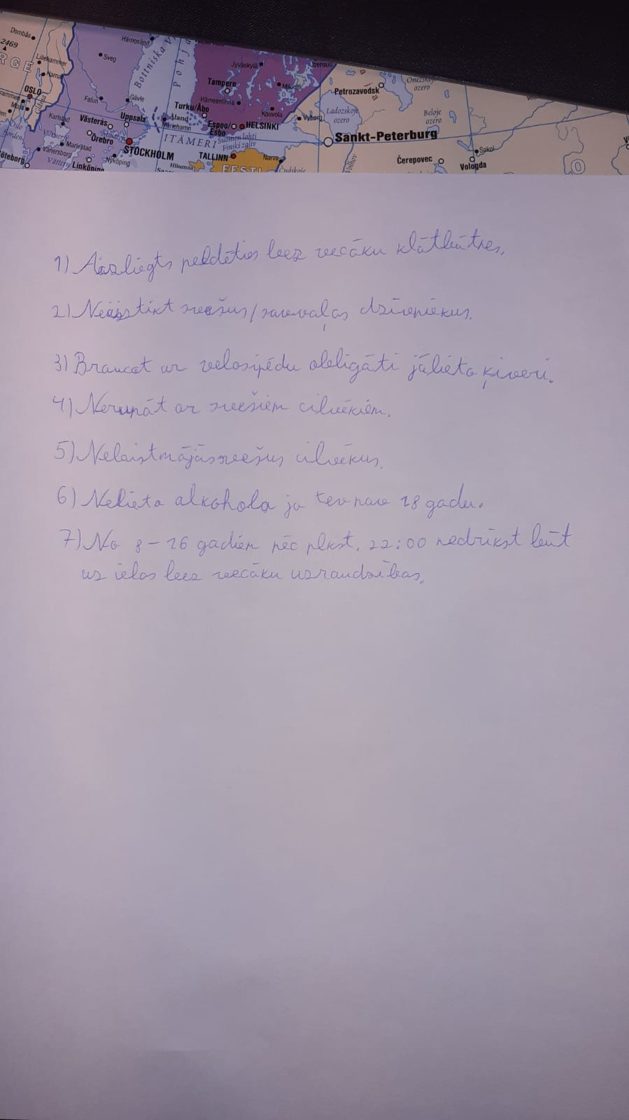 2469
OSLO
Sveg
Falun
Gävle
Västerås
Uppsala
Örebro
STOCKHOLM
Linköping
Tampere
Turku/Åbo
Espoo
Esbo
HELSINKI
ITÄMERI
TALLINN
Narva
EESTI
Vyborg
Petrozavodsk
Ladožskoje
ozero
Beloje
ozero
Sankt-Peterburg
Čerepovec
Sokol
Vologda
1) Aizliegts peldēties bez vecāku klātbūtnes.
2) Neaiztikt svešus/savvaļas dzīvniekus.
3) Braucot ar velosipēdu obligāti jālieto ķiveri.
4) Nerunāt ar svešiem cilvēkiem.
5) Nelaist mājās svešus cilvēkus.
6) Nelieto alkohola ja tev nav 18 gadu.
7) No 8 – 16 gadiem pēc plkst. 22:00 nedrīkst būt
uz ielas bez vecāku uzraudzības.